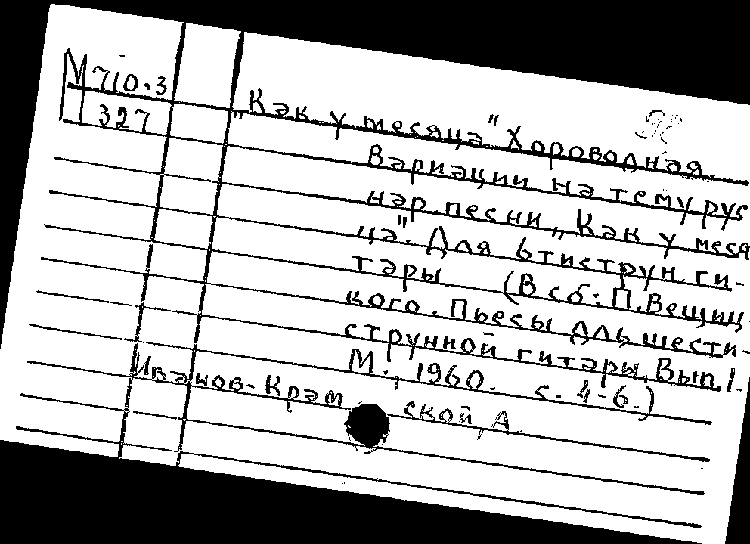 М 710.3
327
„Как у месяца" Хороводная.
Вариации на тему рус
нар. песни „Как у меся
ца". Для 6тиструн. ги-
тары (В сб: П. Вещиц-
кого. Пьесы для шести-
струнной гитары, Вып. 1.
М., 1960. с. 4-6.)
Иванов-Крам ской, А.